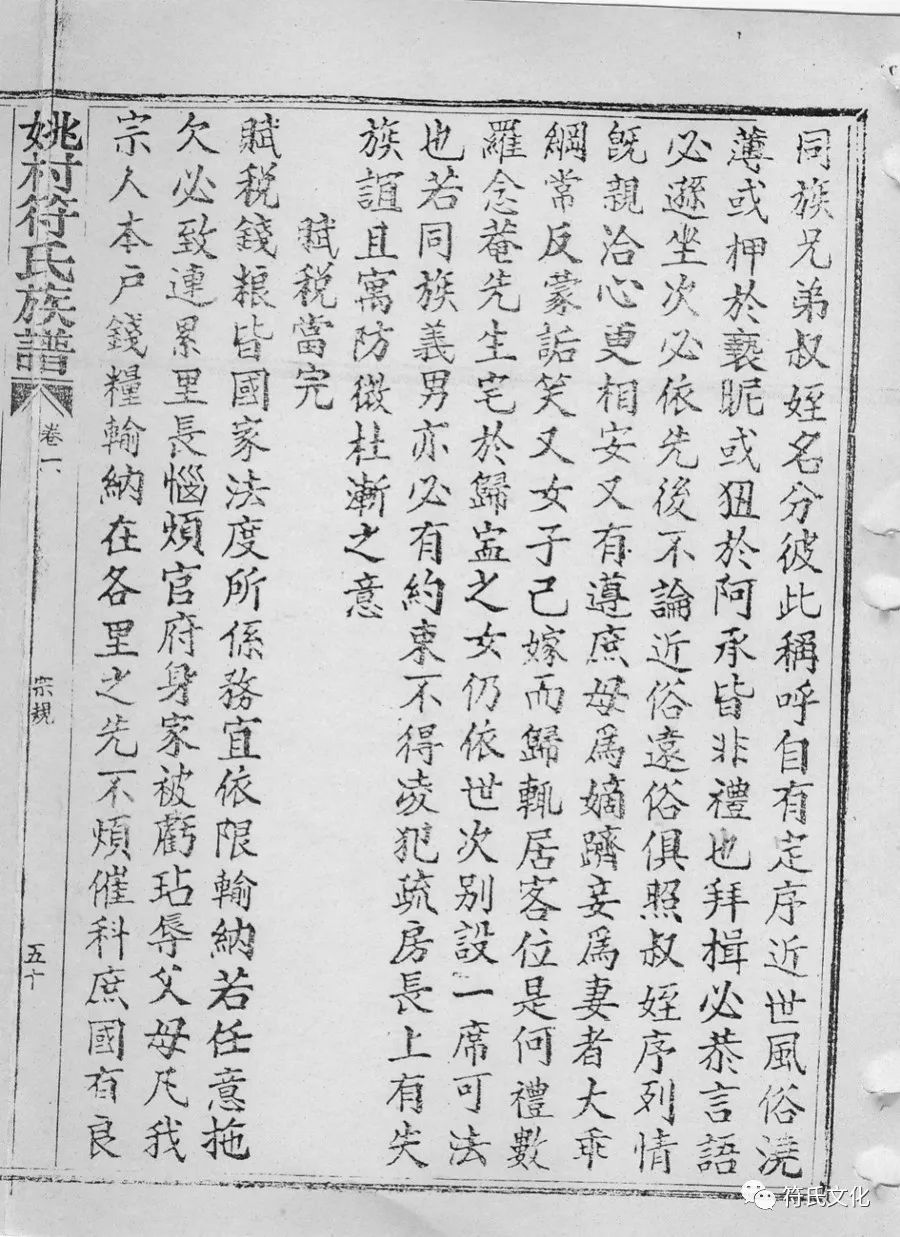 同族兄弟叔姪名分彼此稱呼自有定序近世風俗澆
薄或押於褻昵或狃於阿承皆非禮也拜揖必恭言語
必遜坐次必依先後不論近俗遠俗俱照叔姪序列情
既親洽心更相安又有遵庶母爲嫡躋妾爲妻者大乖
綱常反蒙詬笑又女子已嫁而歸輒居客位是何禮數
羅念菴先生宅於歸寍之女仍依世次別設一席可法
也若同族義男亦必有約束不得凌犯疏房長上有失
族誼且寓防微杜漸之意
賦税當完
賦税錢粮皆國家法度所係務宜依限輸納若任意拖
欠必致連累里長惱煩官府身家被虧玷辱父母凡我
宗人本户錢糧輸納在各里之先不煩催科庶國有良
姚村符氏族譜
卷二
宗規
五十
符氏文化